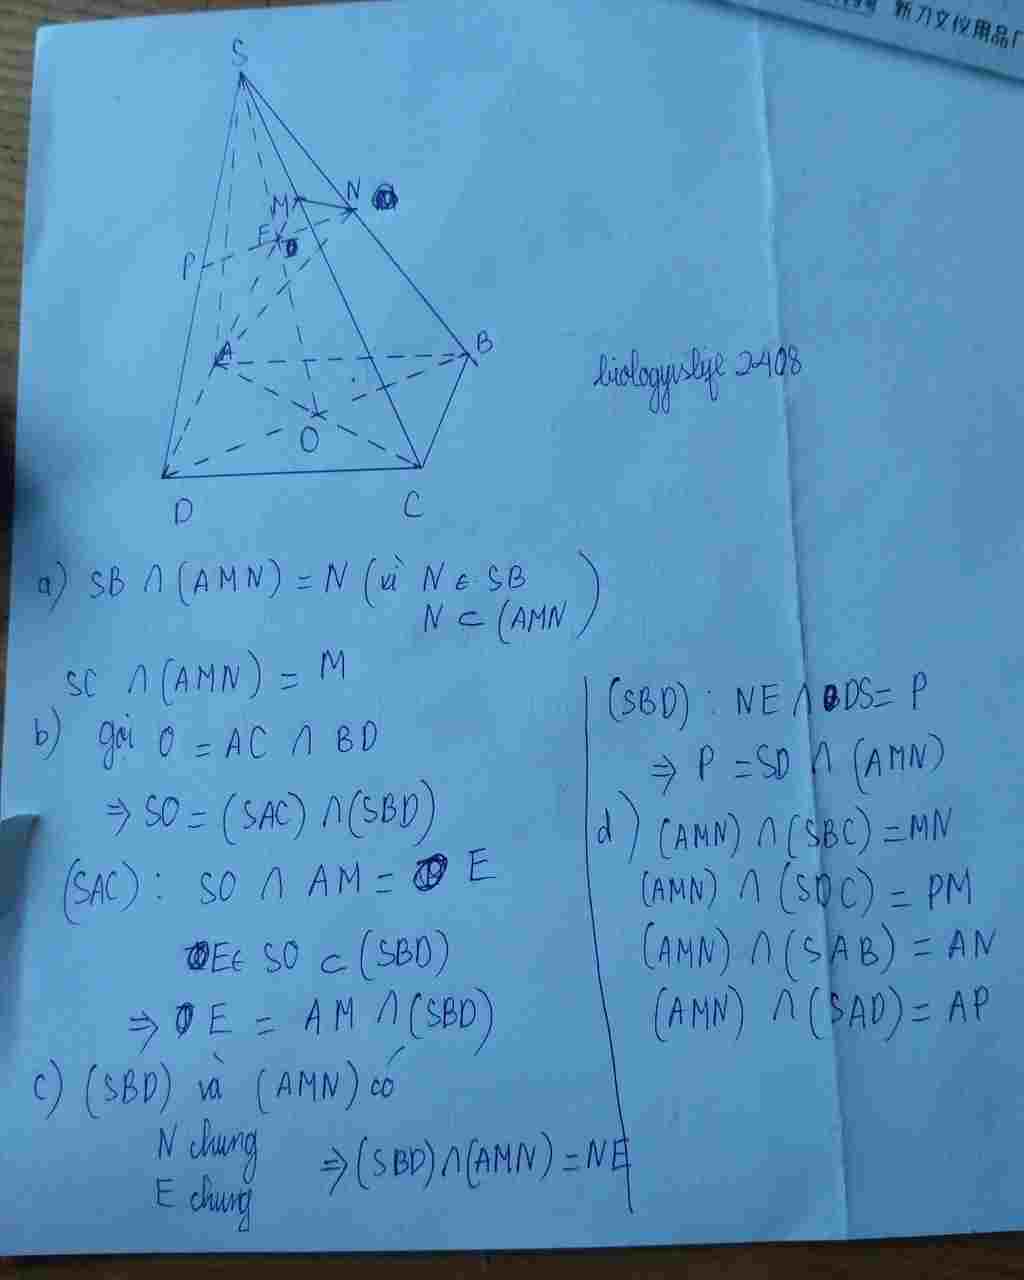 新力文仪用品厂
S
M
N
E
P
A
B
O
D
C
biologyvslife 2408
a) SB ∩ (AMN) = N (vì N ∈ SB
N ⊂ (AMN )
SC ∩ (AMN) = M
b) gọi O = AC ∩ BD
⇒ SO = (SAC) ∩ (SBD)
(SAC) : SO ∩ AM = E
E ∈ SO ⊂ (SBD)
⇒ E = AM ∩ (SBD)
c) (SBD) và (AMN) có
N chung
E chung
⇒ (SBD) ∩ (AMN) = NE
(SBD) : NE ∩ DS = P
⇒ P = SD ∩ (AMN)
d) (AMN) ∩ (SBC) = MN
(AMN) ∩ (SDC) = PM
(AMN) ∩ (SAB) = AN
(AMN) ∩ (SAD) = AP